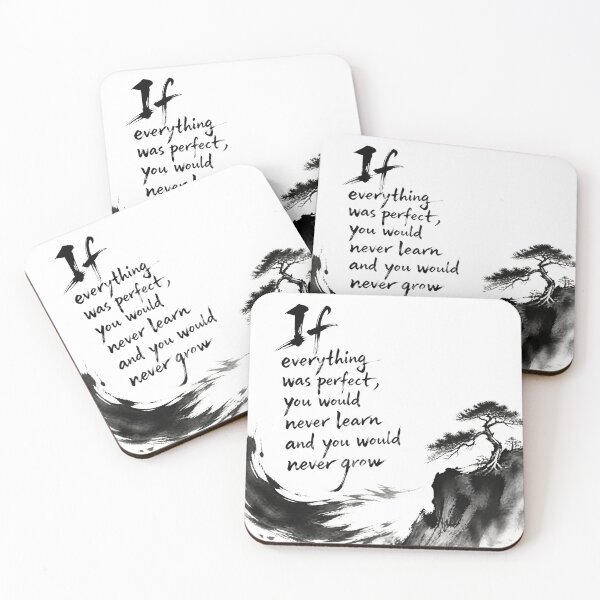 If
everything
was perfect,
you would
never
If
everything
was perfect,
you would
never learn
and you would
never grow
If
everything
was perfect,
you would
never learn
and you would
never grow
If
everything
was perfect,
you would
never learn
and you would
never grow